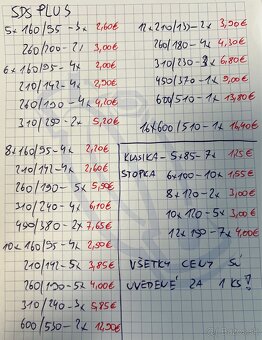 SDS PLUS
5x160/95-3x 2,60€
260/200-2x 3,00€
6x160/95-4x 2,00€
210/142-4x 2,90€
260/190-5x 4,20€
310/250-2x 5,20€
8x160/95-4x 2,20€
210/142-4x 2,60€
260/190-5x 5,90€
310/240-4x 6,10€
450/380-2x 7,65€
10x160/95-4x 2,90€
210/142-5x 3,85€
260/190-5x 4,00€
310/240-3x 5,85€
600/530-2x 12,90€
12x210/150-2x 3,90€
260/180-4x 4,30€
310/230-3x 6,80€
450/370-1x 9,00€
600/510-1x 13,80€
16x600/510-1x 16,40€
KLASIKA-5x85-7x 1,25
STOPKA 6x100-10x 1,55€
8x120-2x 3,00€
10x120-5x 3,00€
12x150-7x 4,00€
VŠETKY CENY SÚ
UVEDENÉ ZA 1 KS!